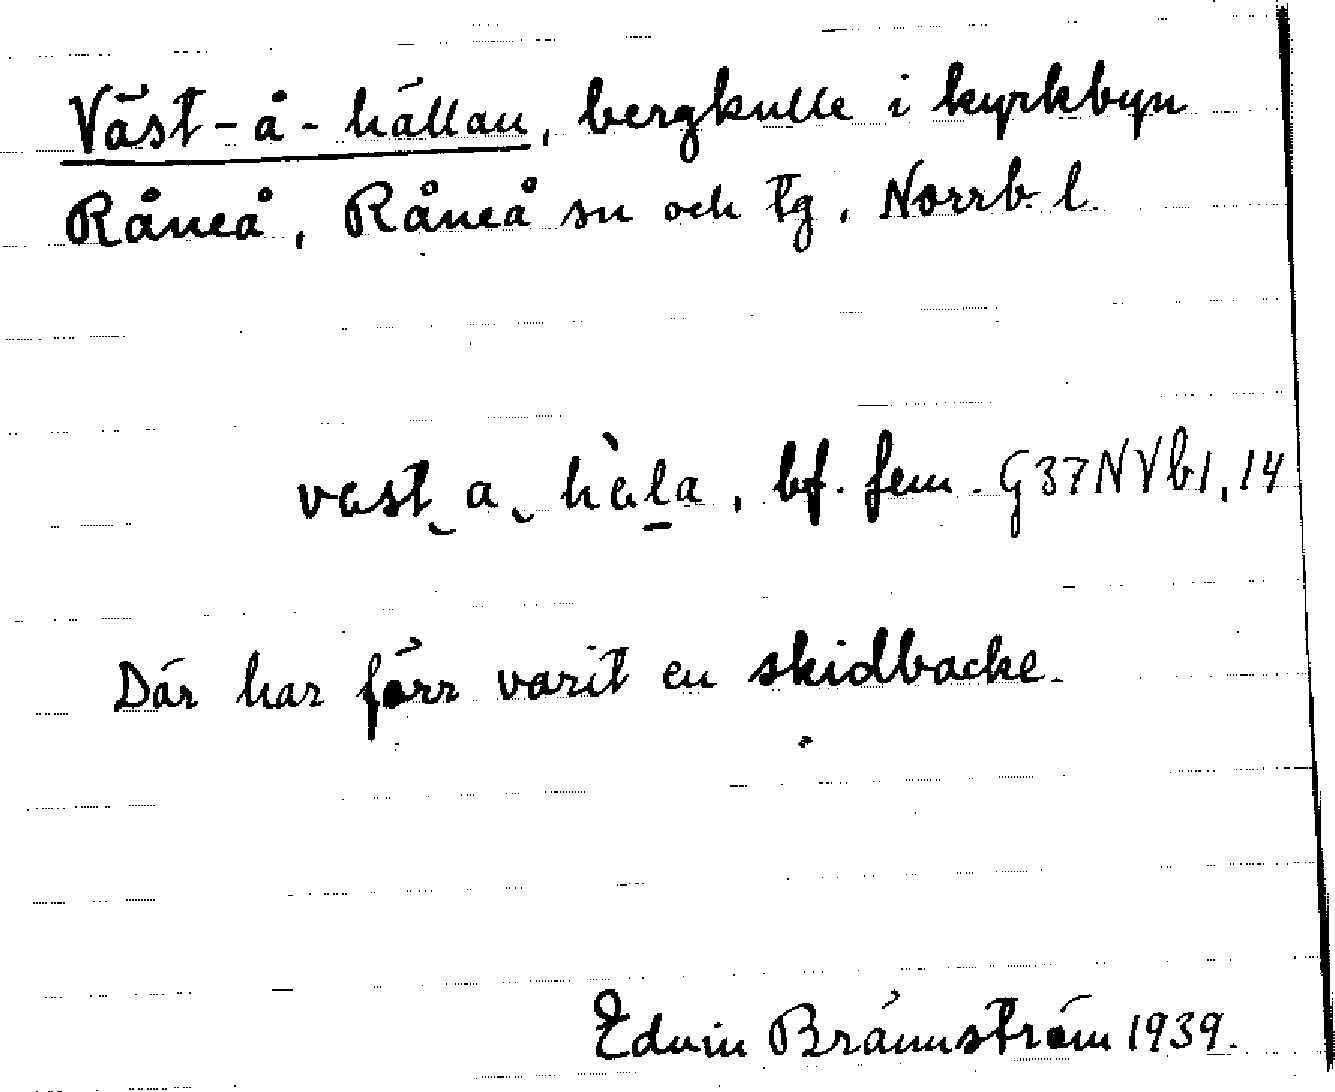 Väst-å-hällan, bergkulle i kyrkbyn
Råneå, Råneå sn och tg, Norrb. l.
vast‿a‿hàl̲a, bf. fem. G37NVb1,14
Där har förr varit en skidbacke.
Edwin Brännström 1939.